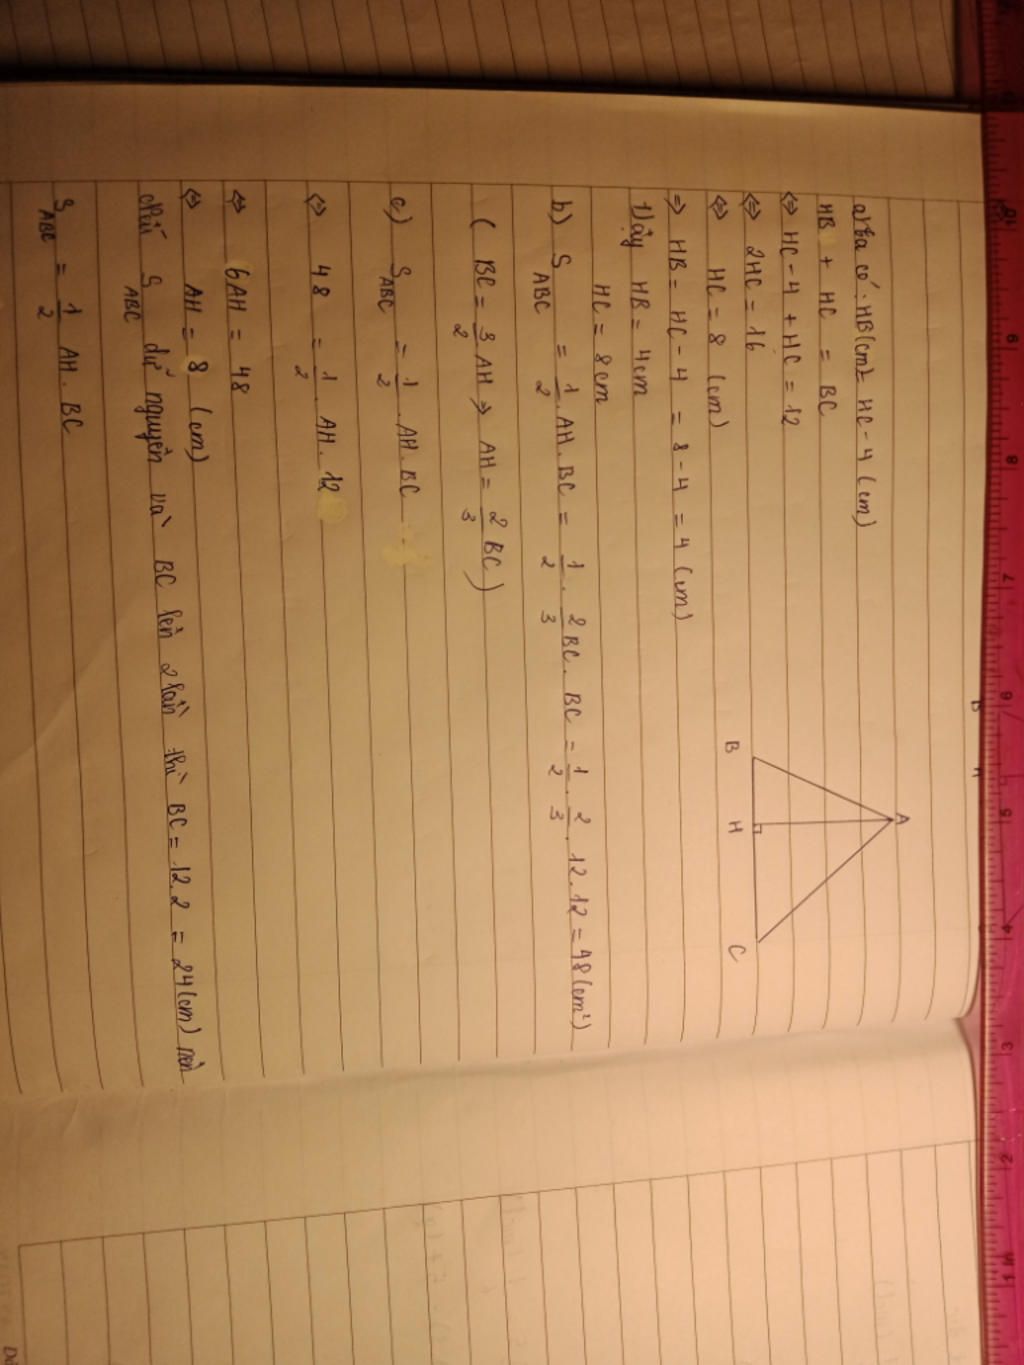 a) Ta có: HB(cm) = HC - 4 (cm)
HB + HC = BC
⇔ HC - 4 + HC = 12
⇔ 2HC = 16
⇔ HC = 8 (cm)
⇒ HB = HC - 4 = 8 - 4 = 4 (cm)
Vậy HB = 4cm
HC = 8cm
A
B H C
b) S ABC = 1/2 . AH . BC = 1/2 . 2/3 BC . BC = 1/2 . 2/3 . 12 . 12 = 48 (cm²)
( BC = 3/2 AH ⇒ AH = 2/3 BC )
c) S ABC = 1/2 . AH . BC
⇔ 48 = 1/2 . AH . 12
⇔ 6AH = 48
⇔ AH = 8 (cm)
Nếu S ABC dữ nguyên và BC lên 2 lần thì BC = 12.2 = 24(cm) nên
S ABC = 1/2 AH . BC
10
9
8
7
6
5
4
3
2
1
B